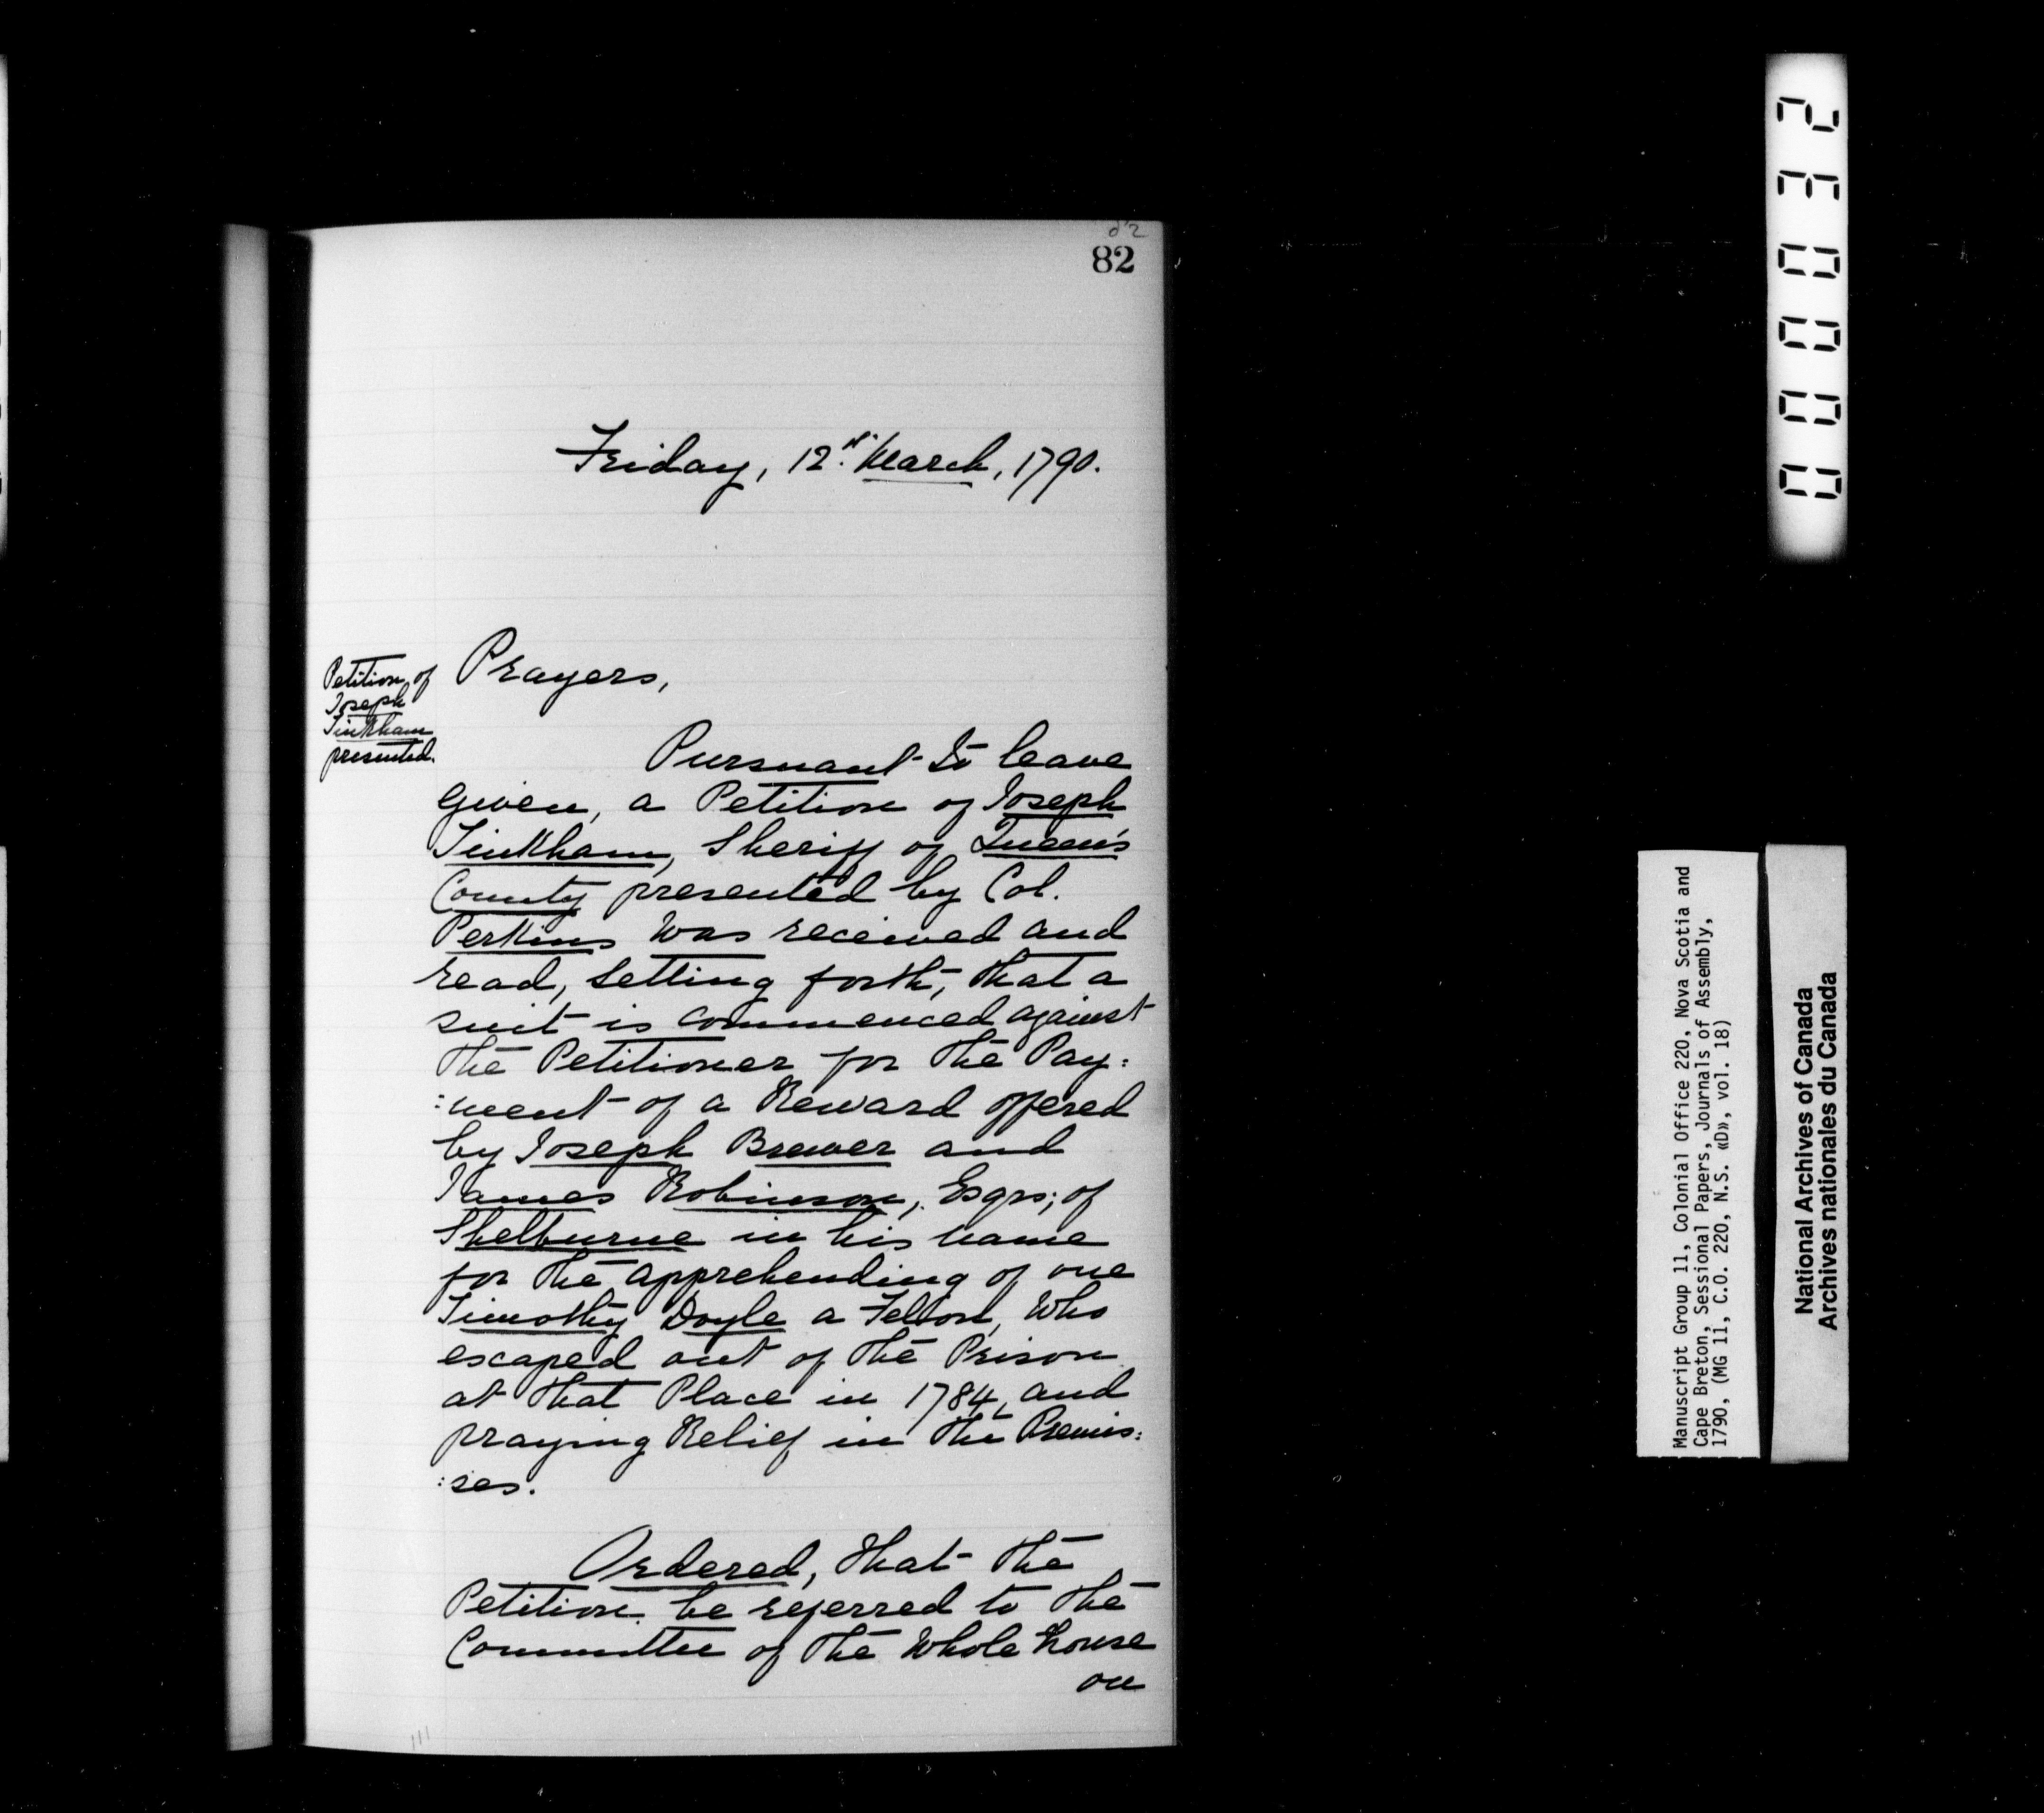 82
82
Friday, 12th. March, 1790.
Petition of
Joseph
Tinkham
presented.
Prayers,
Pursuant to leave
given, a Petition of Joseph
Tinkham, Sheriff of Queen's
County presented by Col.
Perkins was received and
read, setting forth, that a
suit is commenced against
the Petitioner for the Pay:
:ment of a Reward offered
by Joseph Brewer and
James Robinson, Esqrs; of
Shelburne in his name
for the apprehending of one
Timothy Doyle a Fellon, who
escaped out of the Prison
at that Place in 1784, and
praying Relief in the Premis:
:ses.
Ordered, that the
Petition be referred to the
Committee of the Whole house
on
111
000032
Manuscript Group 11, Colonial Office 220, Nova Scotia and
Cape Breton, Sessional Papers, Journals of Assembly,
1790, (MG 11, C.O. 220, N.S. «D», vol. 18)
National Archives of Canada
Archives nationales du Canada